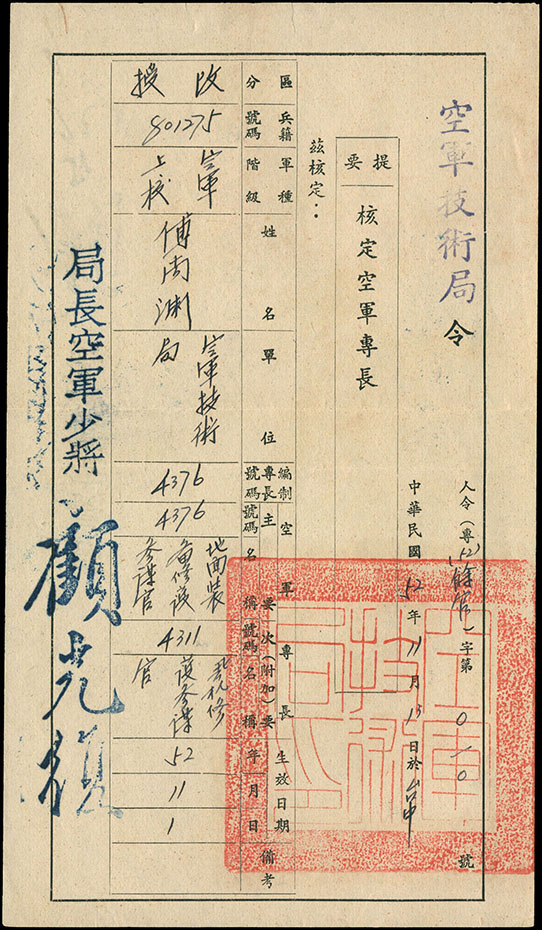 空軍技術局令
人令(專52)字第0一0號
中華民國52年11月15日於台中
提要
核定空軍專長
茲核定：
區分
兵籍號碼
軍種階級
姓名
單位
編制專長號碼
空軍專長
主要
號碼
名稱
次要(附加)
號碼
名稱
生效日期
年月日
備考
改授
801275
空軍上校
傅尚渊
空軍技術局
4376
4376
地面裝备修護參謀官
4311
飛机修護參謀官
52
11
1
局長空軍少將
顧光
空軍技術局印